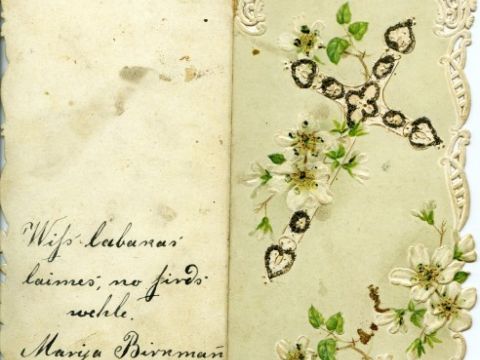 Wiss labakas
laimes, no sirds
wehle.
Marija Birnman